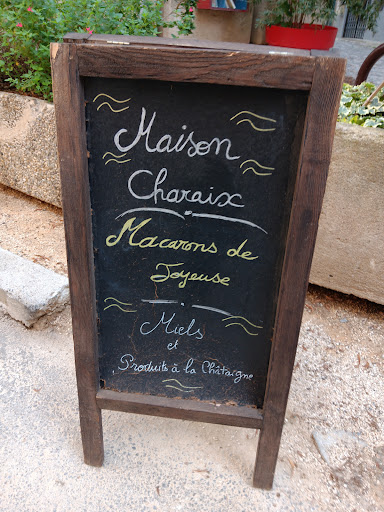 Maison
Charaix
Macarons de
Joyeuse
Miels
et
Produits à la Châtaigne